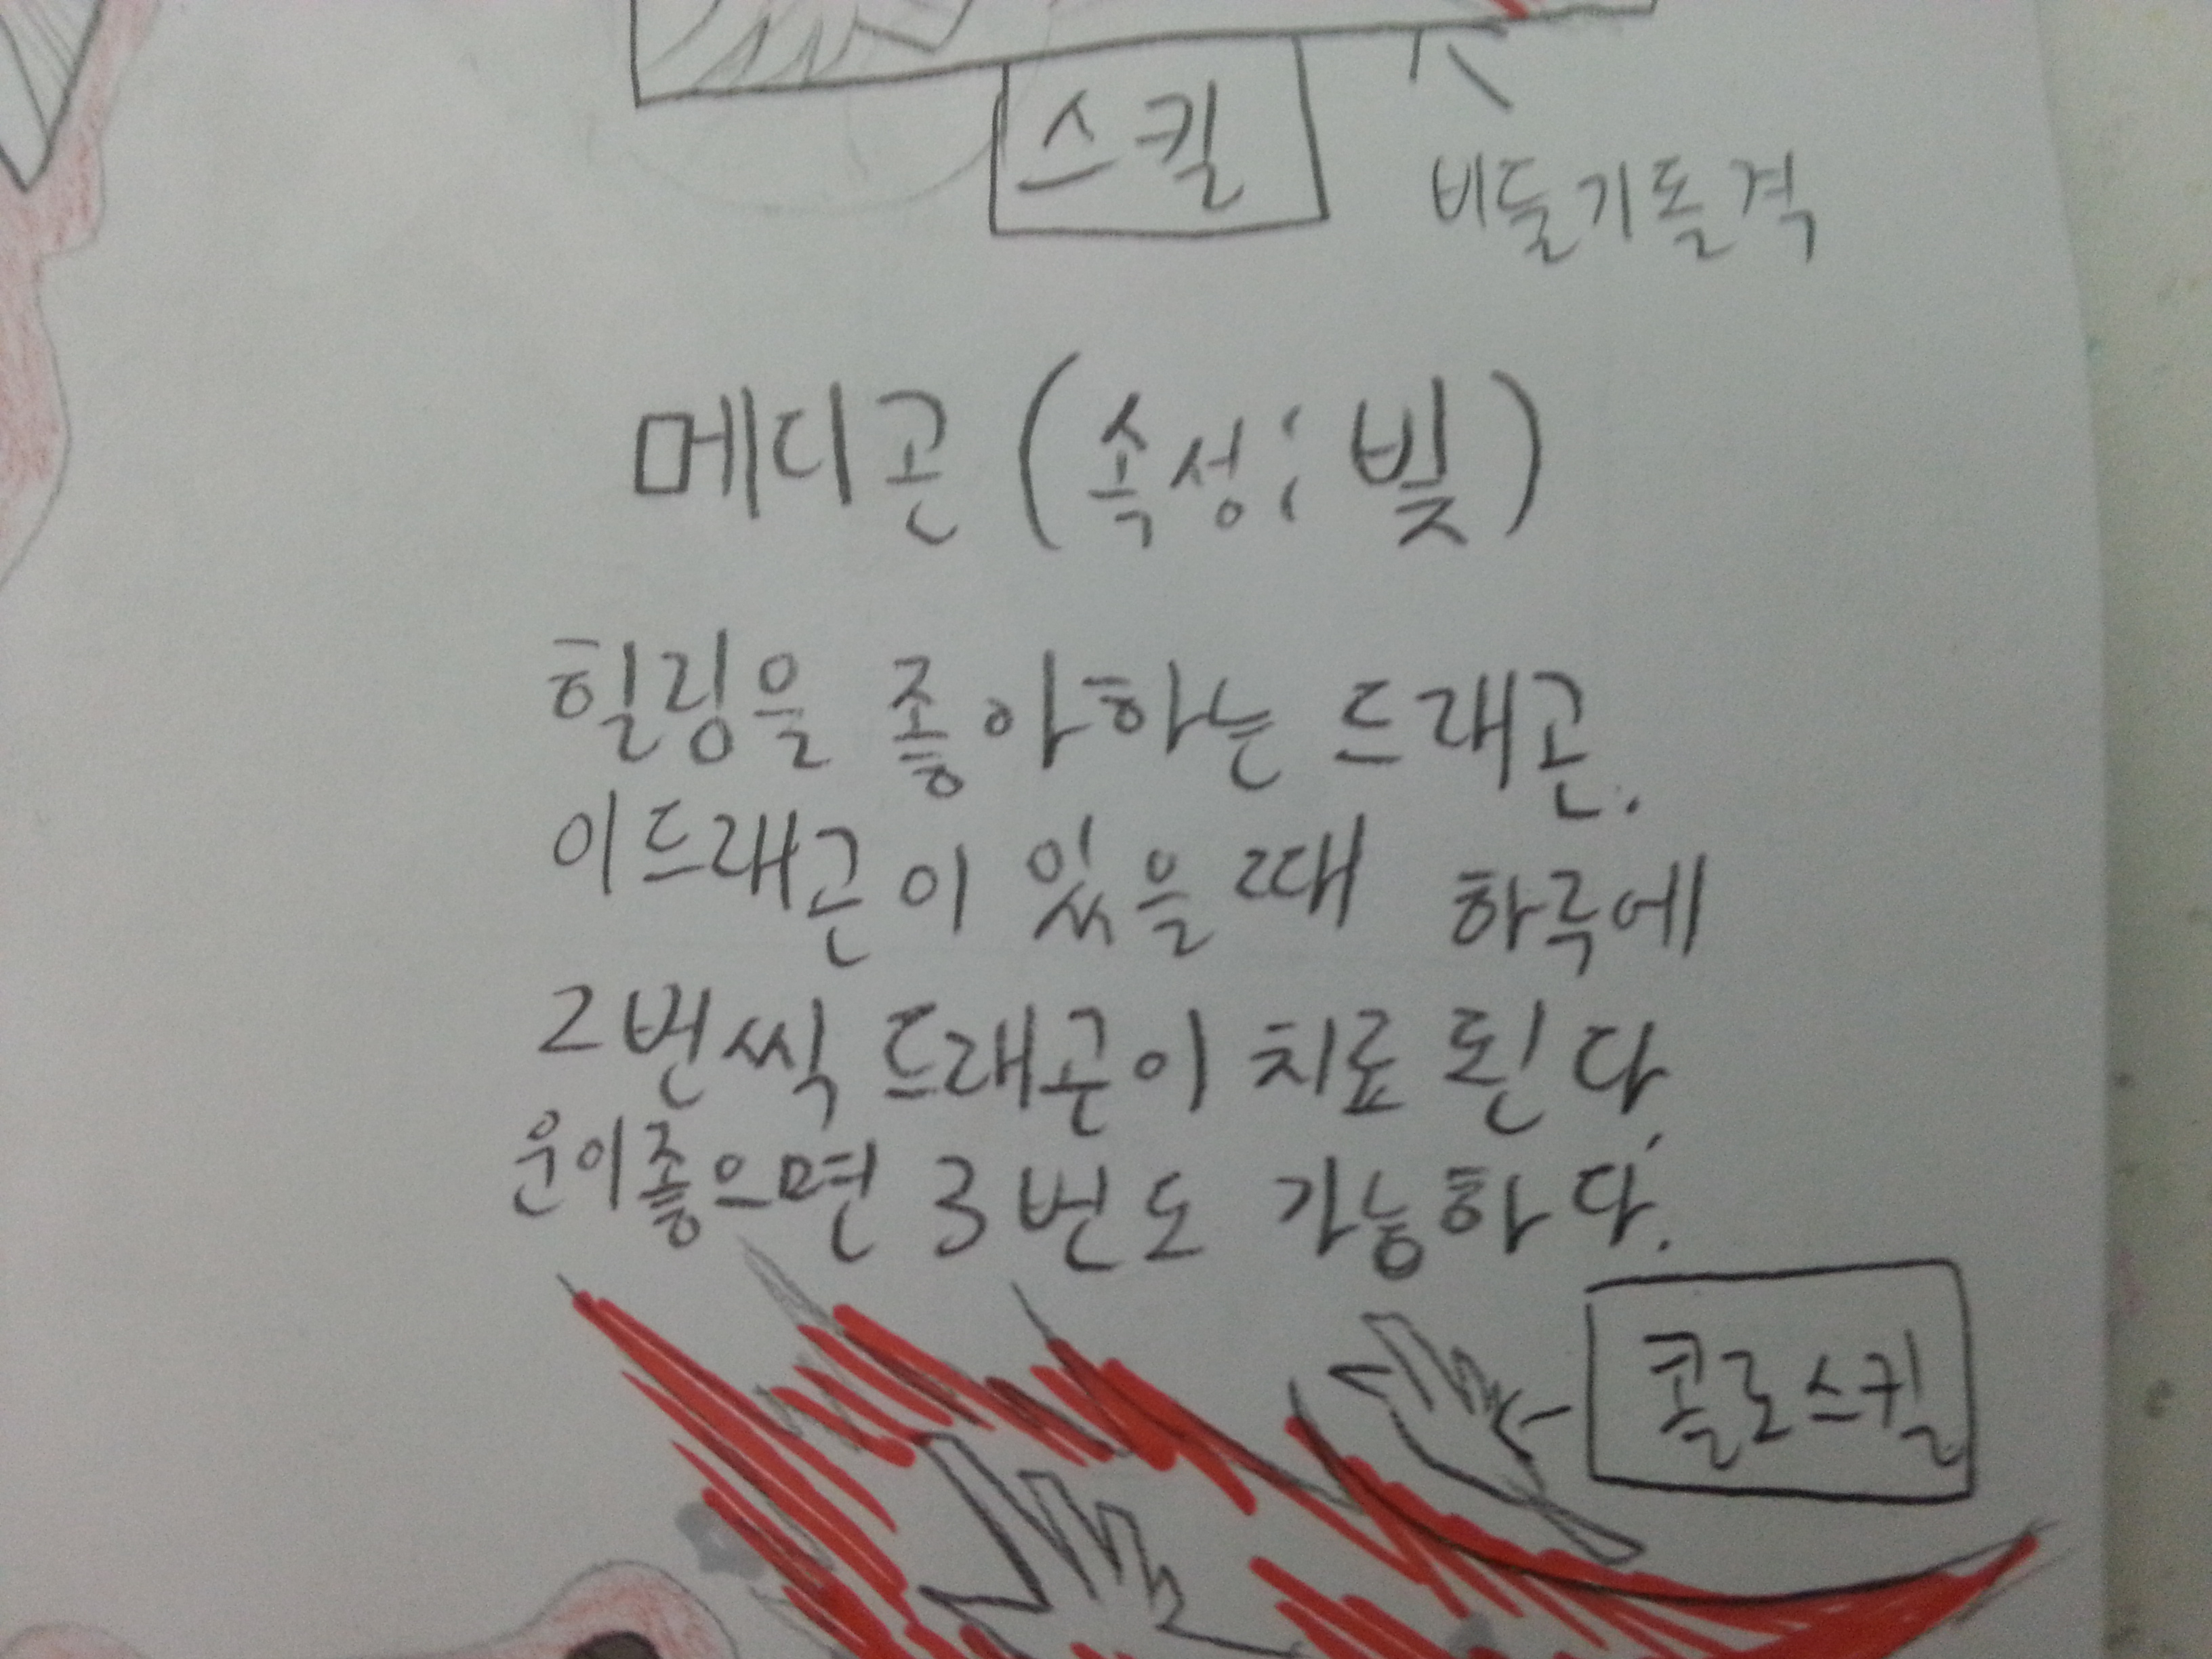 스킬
비둘기돌격
메디곤 (속성: 빛)
힐링을 좋아하는 드래곤.
이드래곤이 있을때 하루에
2번씩 드래곤이 치료 된다.
운이좋으면 3번도 가능하다.
콜로스킬